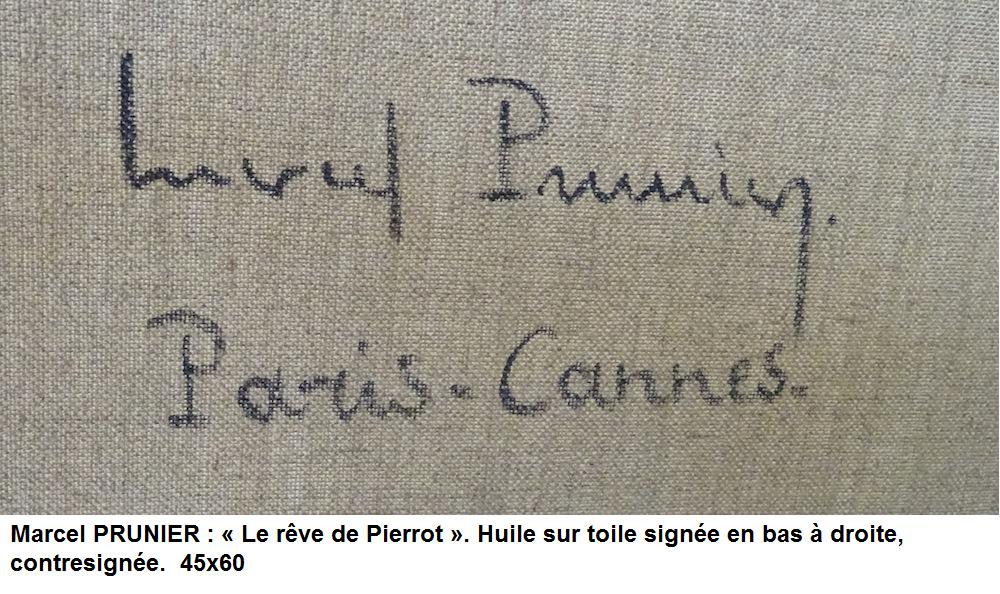 Marcel Prunier.
Paris - Cannes.
Marcel PRUNIER : « Le rêve de Pierrot ». Huile sur toile signée en bas à droite,
contresignée. 45x60